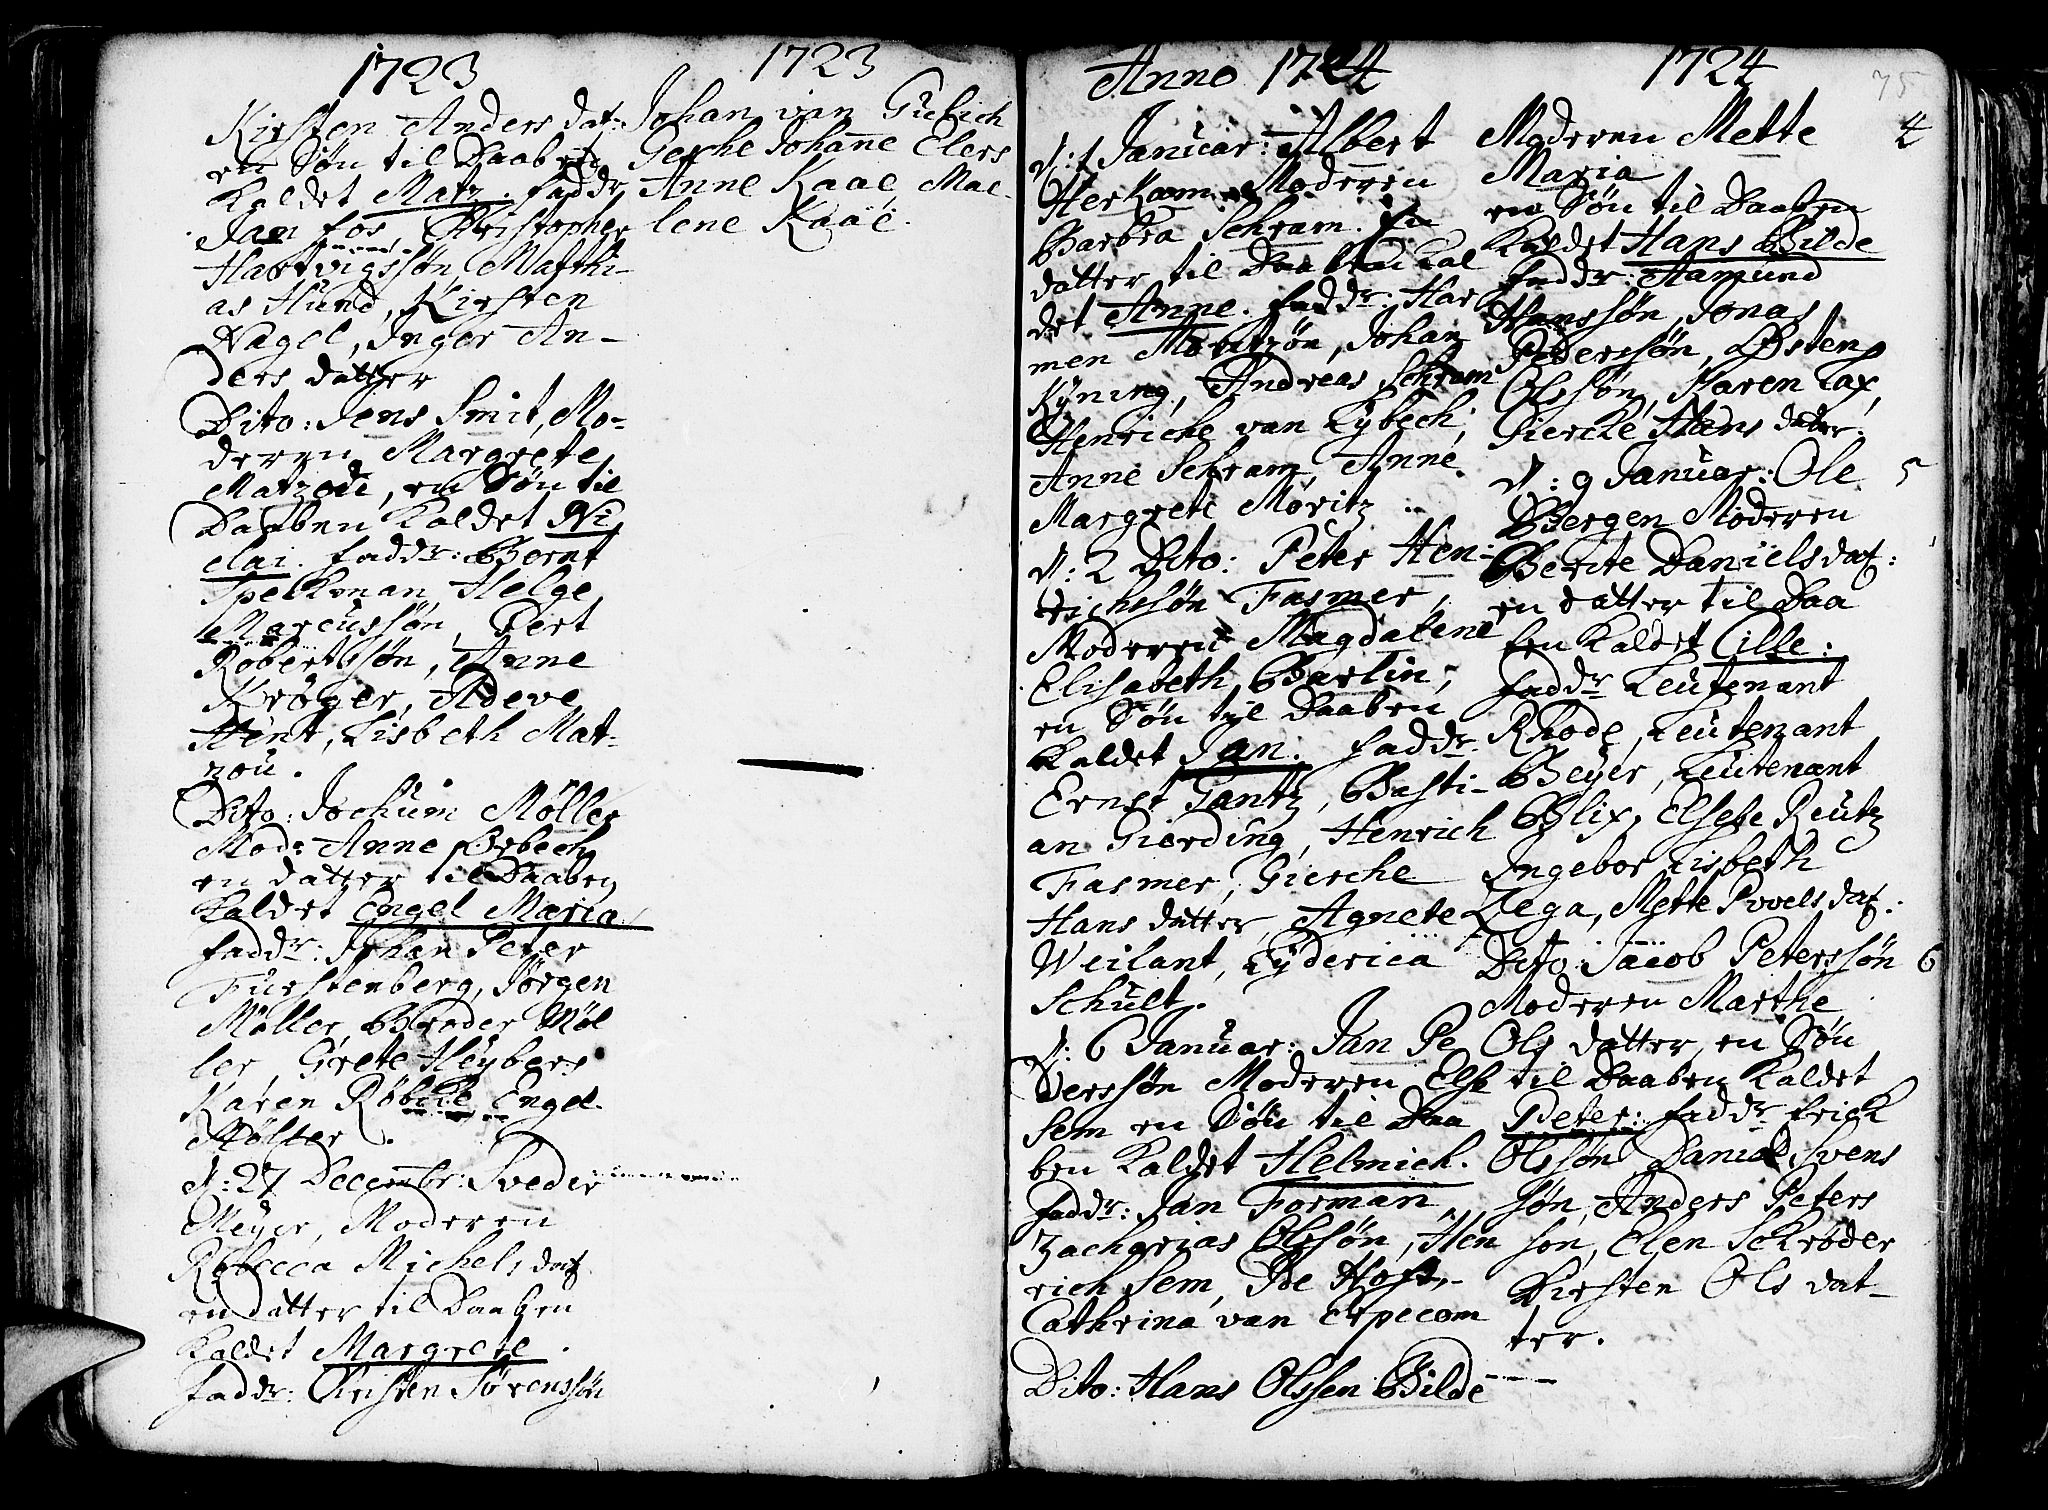 1723
Kirsten Anders dat:
en Søn til Daaben
Kaldet Matz. faddr
Jan fos Christopher
Hartvigssøn, Matthi-
as Hund, Kirsten
Nagel, Inger An-
ders datter
Dito: Jens Smit, Mo-
deren Margrete
Matzou, en Søn til
Daaben Kaldet Ni
clai. faddr: Bernt
Speckman, Helge
Marcussøn, Pert
Robertssøn, Anne
Krøger, Adeve
Hent, Lisbeth Mat-
zou.
Dito: Jochum Møller
Mod: Anne Ørbech
en datter til Daaben
Kaldet Engel Maria
faddr: Johan Peter
Furstenberg, Jørgen
Møller, Broder Møl
ler, Grete Heyberg
Karen Røbcke Engel
Mølter.
d: 27 Decembr: Sveder
Meyer, Moderen
Rebecca Michels dat
en datter til Daaben
Kaldet Margrete.
faddr: Kristen Sørenssøn
1723
Johan van Gulich
Gerche Johanne Elers
Anne Kaae Mac-
lene Kaae.
Anno 1724
d: 1 Januar: Albert
Herkam Moderen
Barbra Schram. En
datter til Daaben Kal
det Anne. faddr: Har
men Moritzøn, Johan
Kyning, Andreas Schram
Henriche van Lybech,
Anne Schram Anne
Margrete Møritz
d: 2 Dito: Peter Hen-
richssøn Fasmer,
Moderen Magdalene
Elisabeth Barlin;
en Søn til Daaben
Kaldet Jan. faddr:
Ernst Gantz, Basti-
an Gierding, Henrich
Fasmer, Gierche
Hans datter, Agnete
Weilant, Lyderica
Schult.
d: 6 Januar: Jan Pe
derssøn Moderen Else
Sem en Søn til Daa
ben Kaldet Helmich.
faddr: Jan Forman
Zacharias Olssøn, Hen
rich Sem, Ide Hoft,
Cathrina van Erpecom
Dito: Hans Olssen Bilde
1724
75
Moderen Mette 4
Maria
en Søn til Daaben
Kaldet Hans Bilde
faddr: Hamund
Hanssøn, Jonas
Pederssøn, Østen
Olssøn, Karen Lax,
Giercke Hans datter.
d: 9 Januar: Ole 5
Bergen Moderen
Berite Daniels dat:
en datter til Daa
ben Kaldet Cille:
faddr Leutenant
Rhode, Leutenant
Beyer, Leutenant
Blix, Elsebe Reutz
Ingebor Lisbeth
Lega, Mette Povels dat:
Dito: Jacob Peterssøn 6
Moderen Marthe
Ols datter, en Søn
til Daaben Kaldet
Peter: faddr Erick
Olssøn Daniel Svens
søn, Anders Peters
søn, Elen Schrøder
Kirsten Ols dat-
ter.